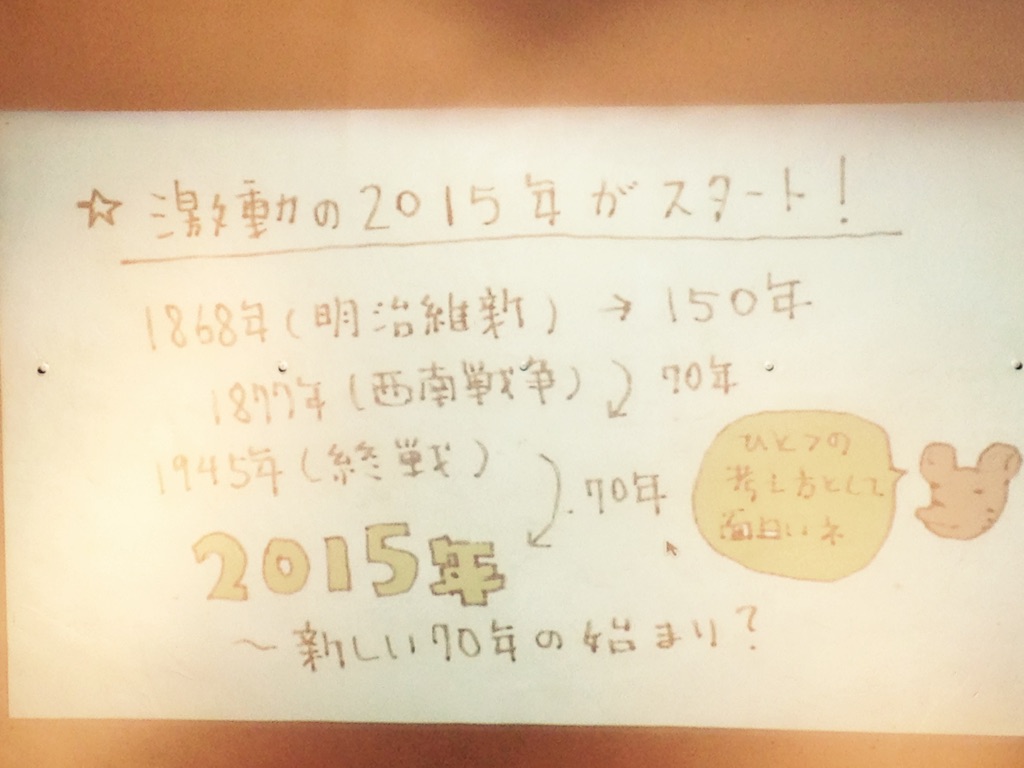 ☆激動の2015年がスタート!
1868年(明治維新) → 150年
1877年(西南戦争) 70年
1945年(終戦) 70年
2015年
~新しい70年の始まり?
ひとつの
考え方として
面白いネ